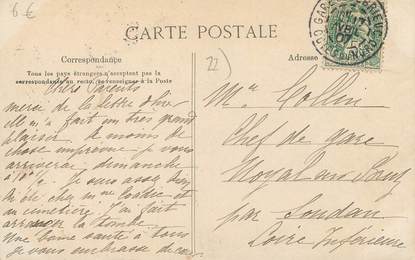 6 €
CARTE POSTALE
Correspondance
Tous les pays étrangers n'acceptent pas la
correspondance au recto, se renseigner à la Poste
Adresse
22)
Chers Parents
merci de la lettre d'hier
Elle m'a fait un très grand
plaisir. A moins de
chose imprévue je vous
arriverai dimanche
à 10h ½. Je suis assez
été chez me et
au cimetière. J'ai fait
arranger la tombe.
Une bonne santé à tous
je vous embrasse de cœur
Mr Collin
Chef de gare
Noyal sur
par Soudan
Loire Inférieure